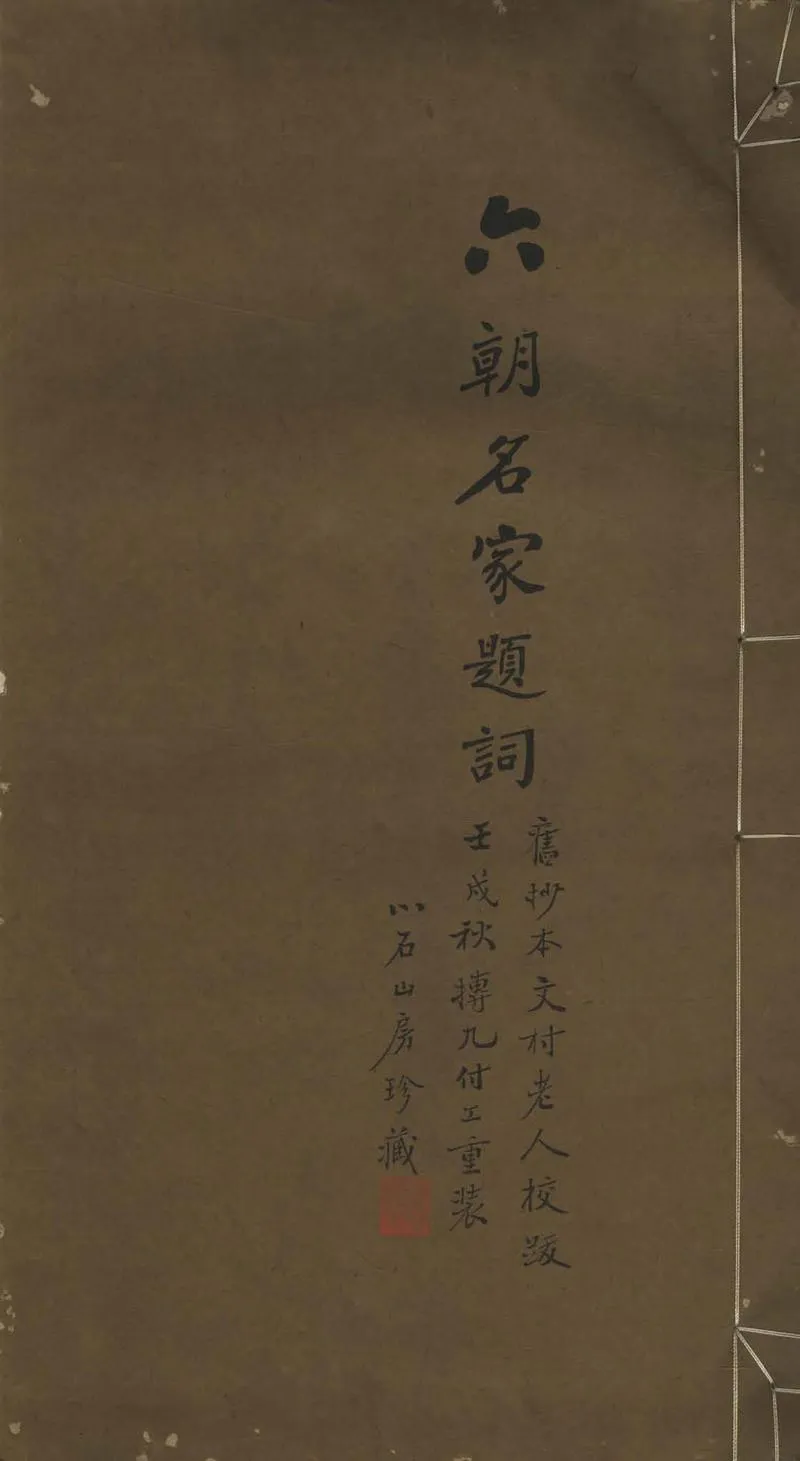 六朝名家題詞
舊抄本文村老人校跋
壬戌秋摶九付工重装
小石山房珍藏